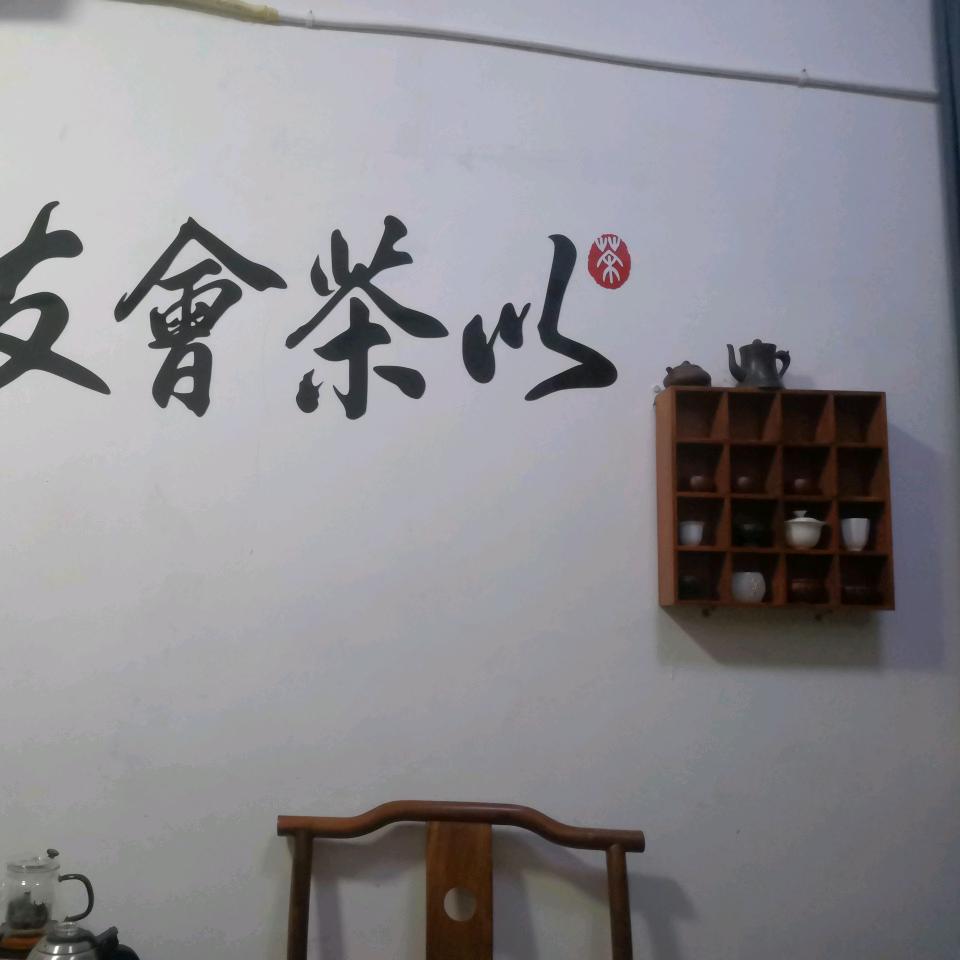 以茶會友
茶